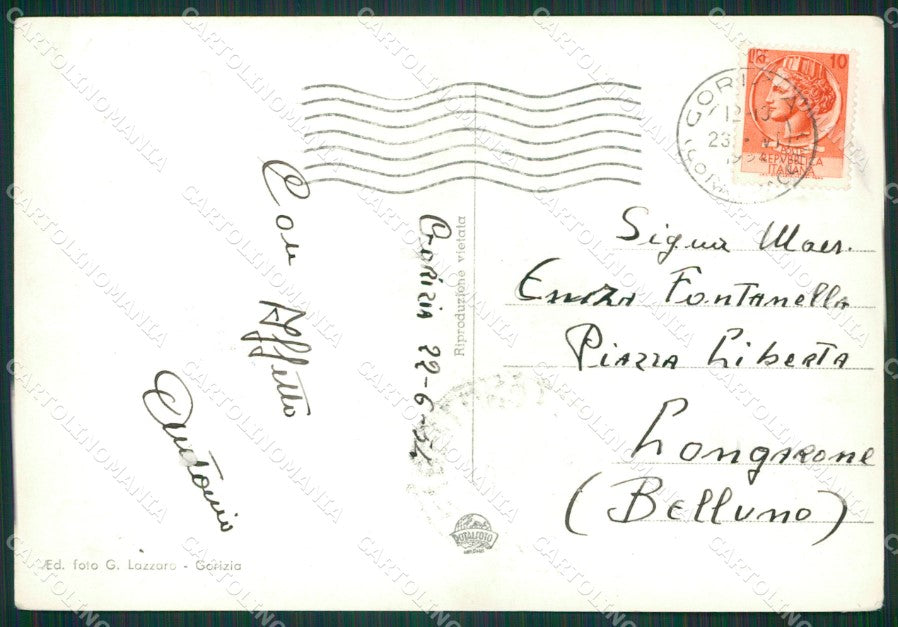 Con Affetto
Antonio
Gorizia 22-6-54
Riproduzione vietata
Ed. foto G. Lazzaro - Gorizia
LIRE 10
REPVBBLICA
ITALIANA
GORIZIA
12-13
23
Sig.na Maes.
Enza Fontanella
Piazza Libertà
Longarone
(Belluno)
CARTOLINOMANIA